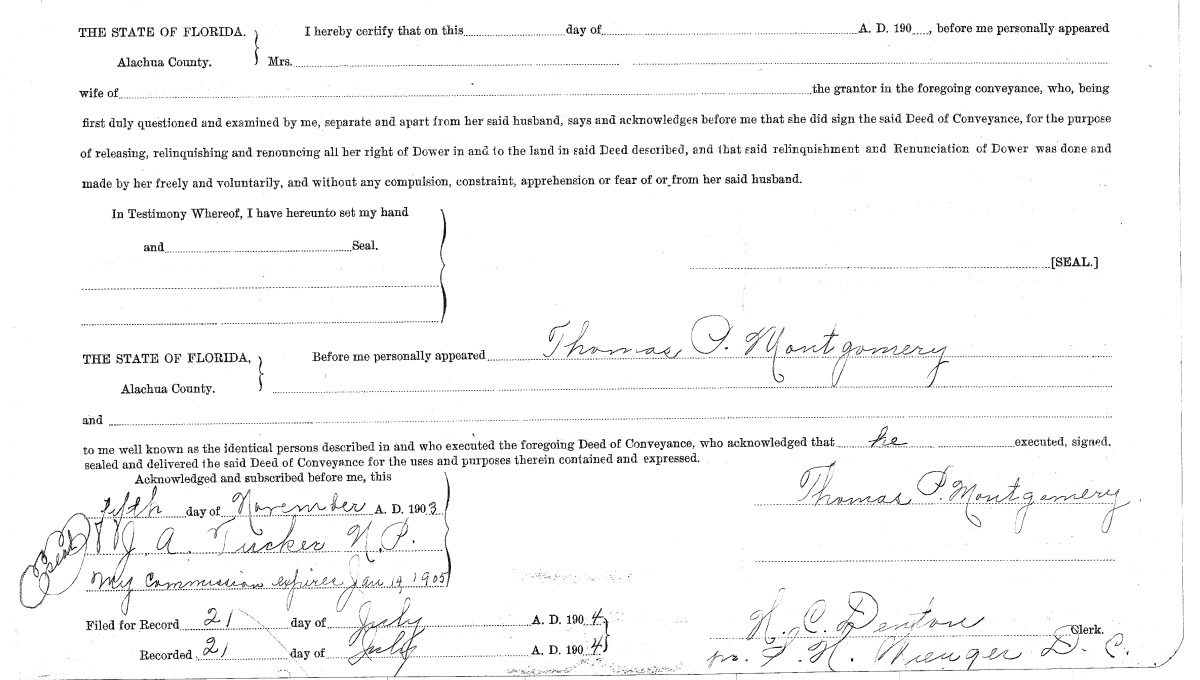 THE STATE OF FLORIDA. I hereby certify that on this day of A. D. 190 , before me personally appeared
Alachua County. Mrs.
wife of the grantor in the foregoing conveyance, who, being
first duly questioned and examined by me, separate and apart from her said husband, says and acknowledges before me that she did sign the said Deed of Conveyance, for the purpose
of releasing, relinquishing and renouncing all her right of Dower in and to the land in said Deed described, and that said relinquishment and Renunciation of Dower was done and
made by her freely and voluntarily, and without any compulsion, constraint, apprehension or fear of or from her said husband.
In Testimony Whereof, I have hereunto set my hand
and Seal.
[SEAL.]
THE STATE OF FLORIDA, Before me personally appeared Thomas P. Montgomery
Alachua County.
and
to me well known as the identical persons described in and who executed the foregoing Deed of Conveyance, who acknowledged that he executed, signed,
sealed and delivered the said Deed of Conveyance for the uses and purposes therein contained and expressed.
Acknowledged and subscribed before me, this
Thomas P. Montgomery.
fifth day of November A. D. 1903
Seal J. A. Tucker N.P.
My Commission expires Jan 14, 1905
Filed for Record 21 day of July A. D. 1904
H. C. Denton Clerk.
Recorded 21 day of July A. D. 1904
pr. S. H. Wienges D. C.